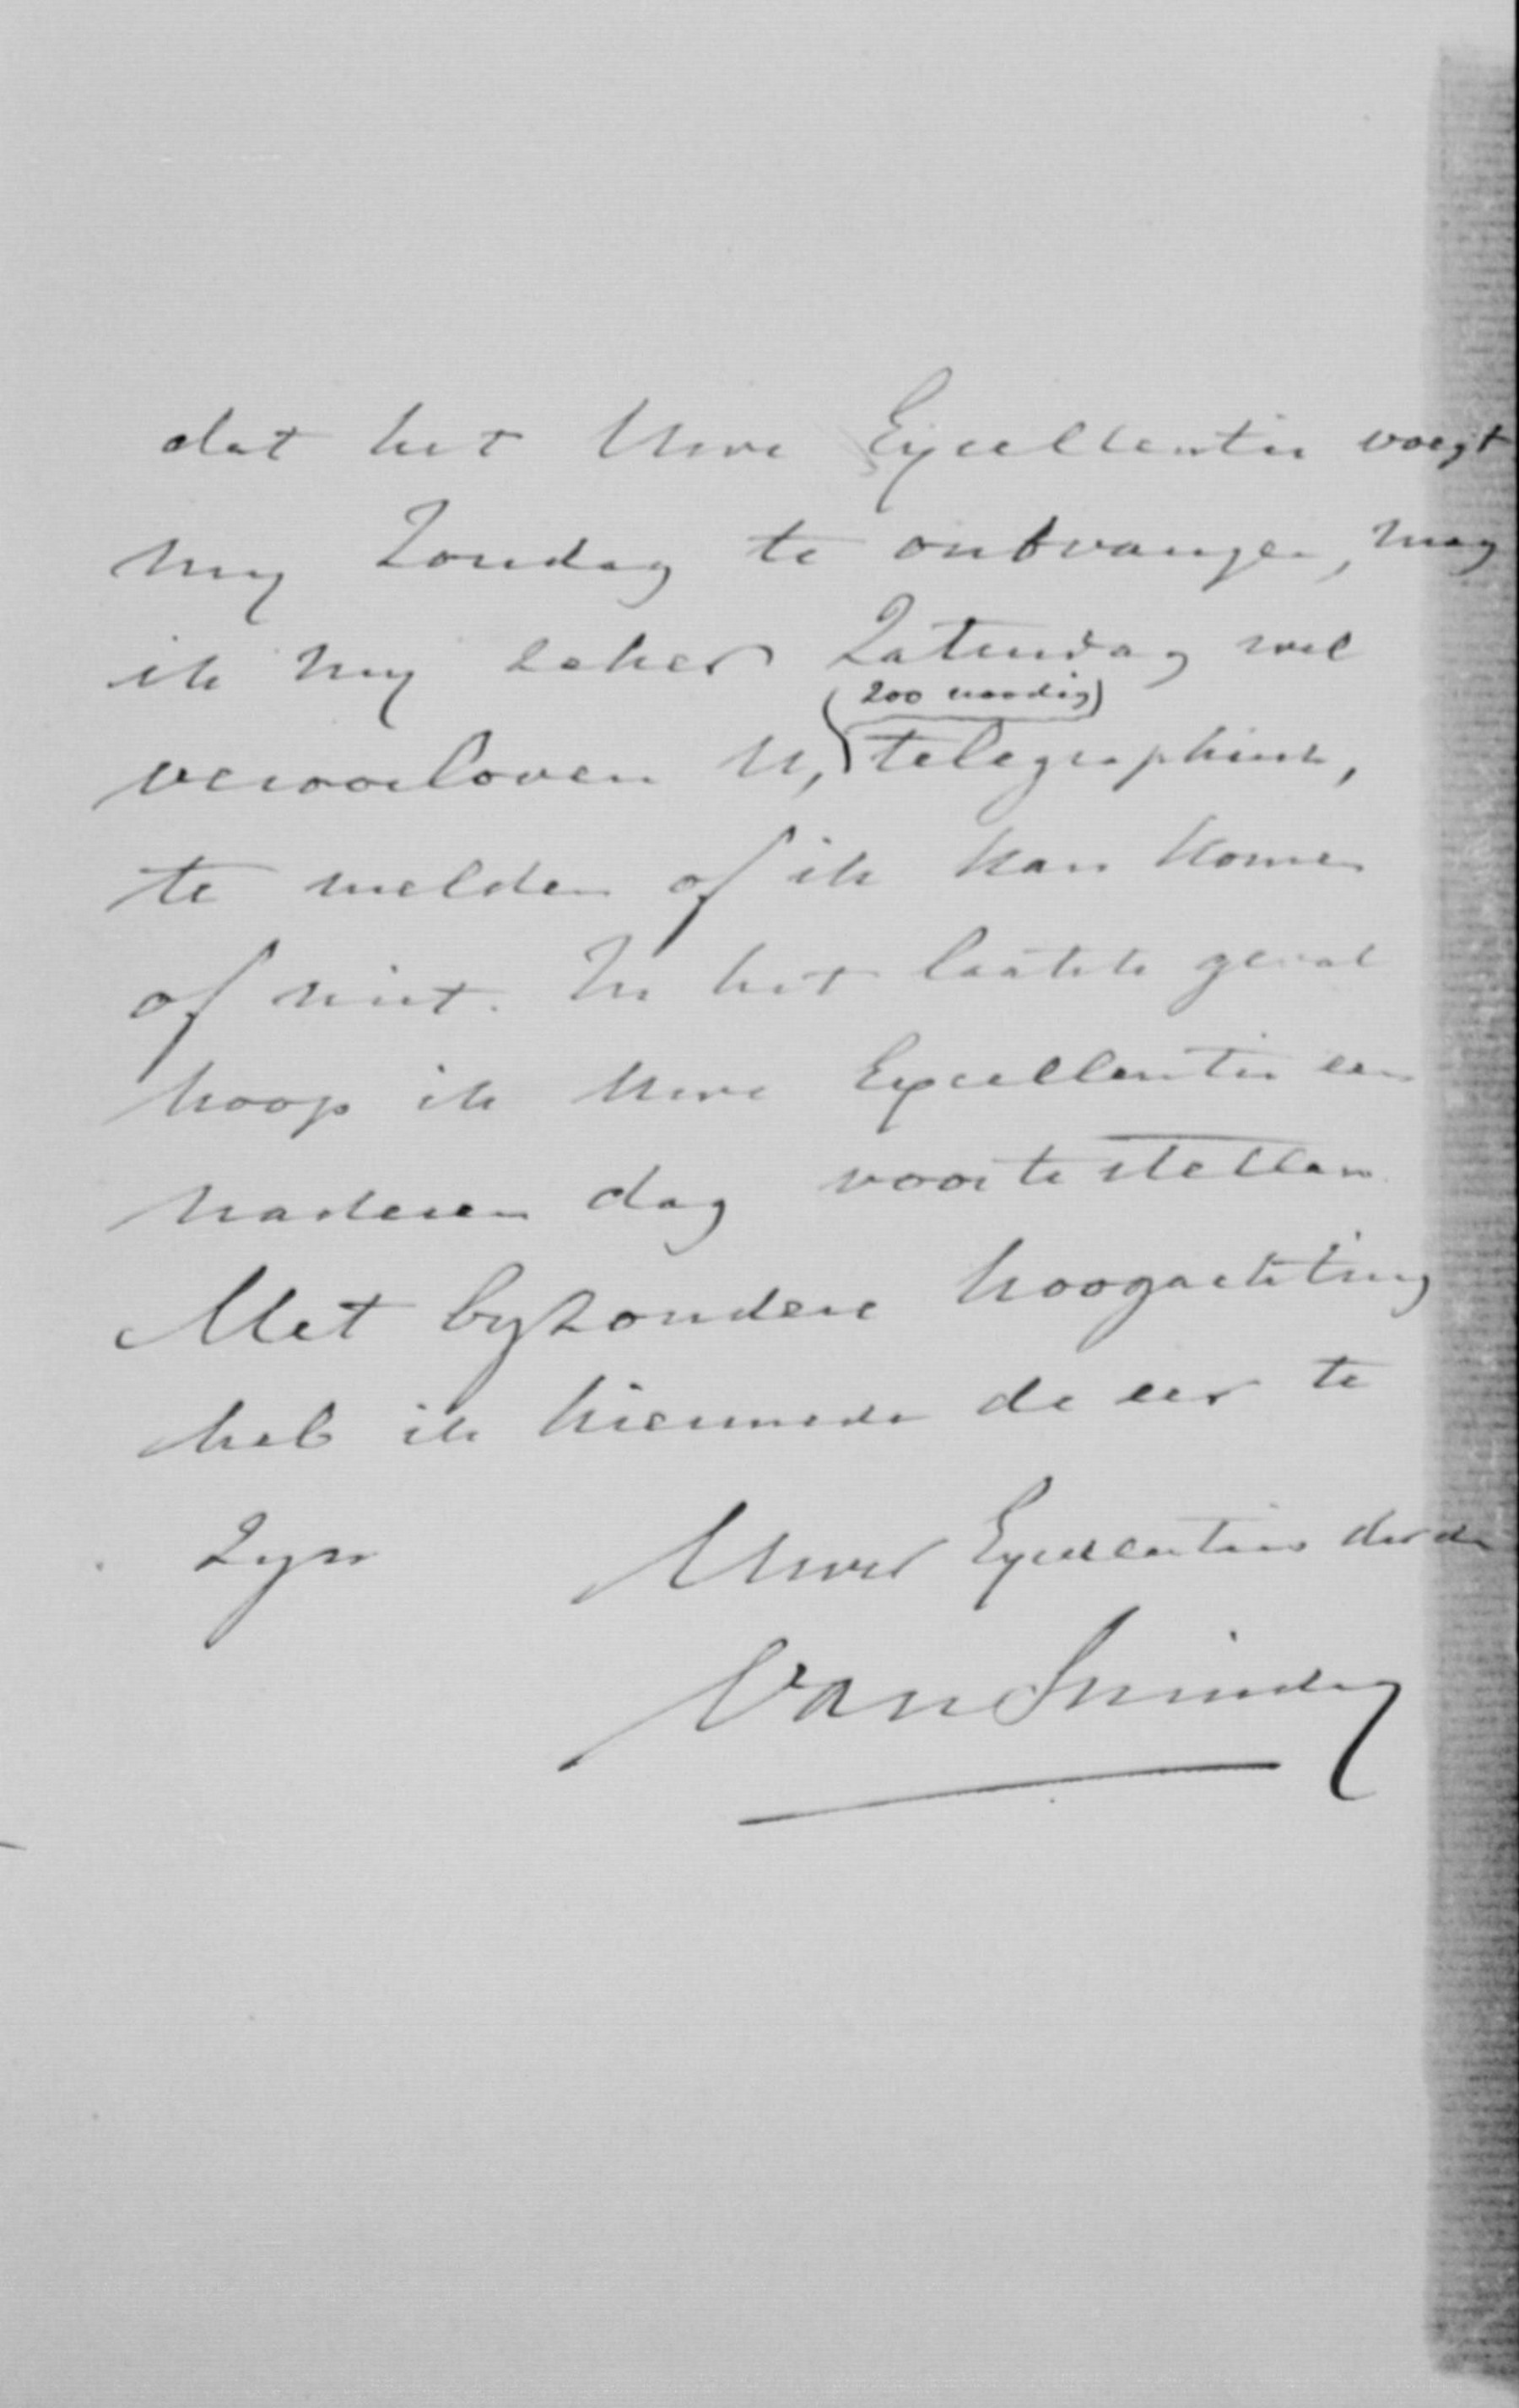 dat het Uwe Excellentie voegt
my Zondag te ontvangen, mag
ik my zeker Zaturdag wel
(zoo noodig)
veroorloven U, telegraphisch,
te melden of ik kan komen
of niet. In het laatste geval
hoop ik Uwe Excellentie een
naderen dag voor te stellen.
Met byzondere hoogachting
heb ik hiermede de eer te
zyn Uwer Excellenties
Van Swinderen